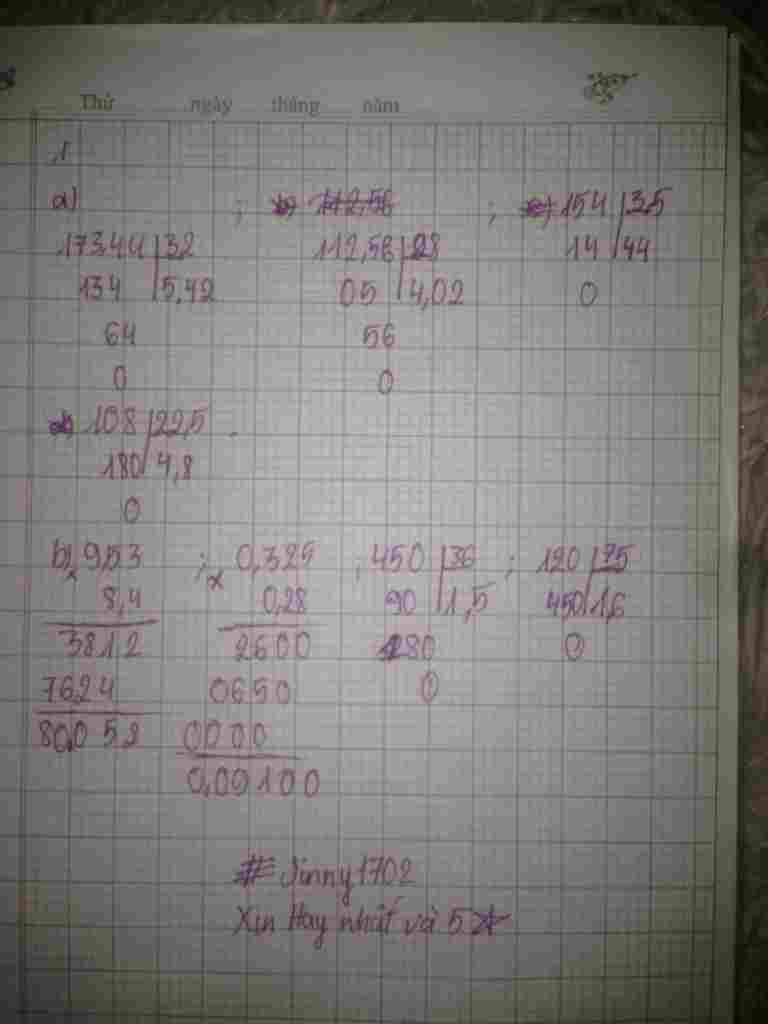 Thứ ngày tháng năm
1
a) ; b) 112,56 ; c) 154 3,5
173,44 32 112,56 28 14 44
134 5,42 05 4,02 0
64 56
0 0
d) 108 22,5
180 4,8
0
b) 9,53 ; 0,325 ; 450 36 ; 120 75
x 8,4 x 0,28 90 1,5 450 1,6
3812 2600 180 0
7624 0650 0
80,052 0000
0,09100
# Jinny1702
Xin Hay nhất và 5